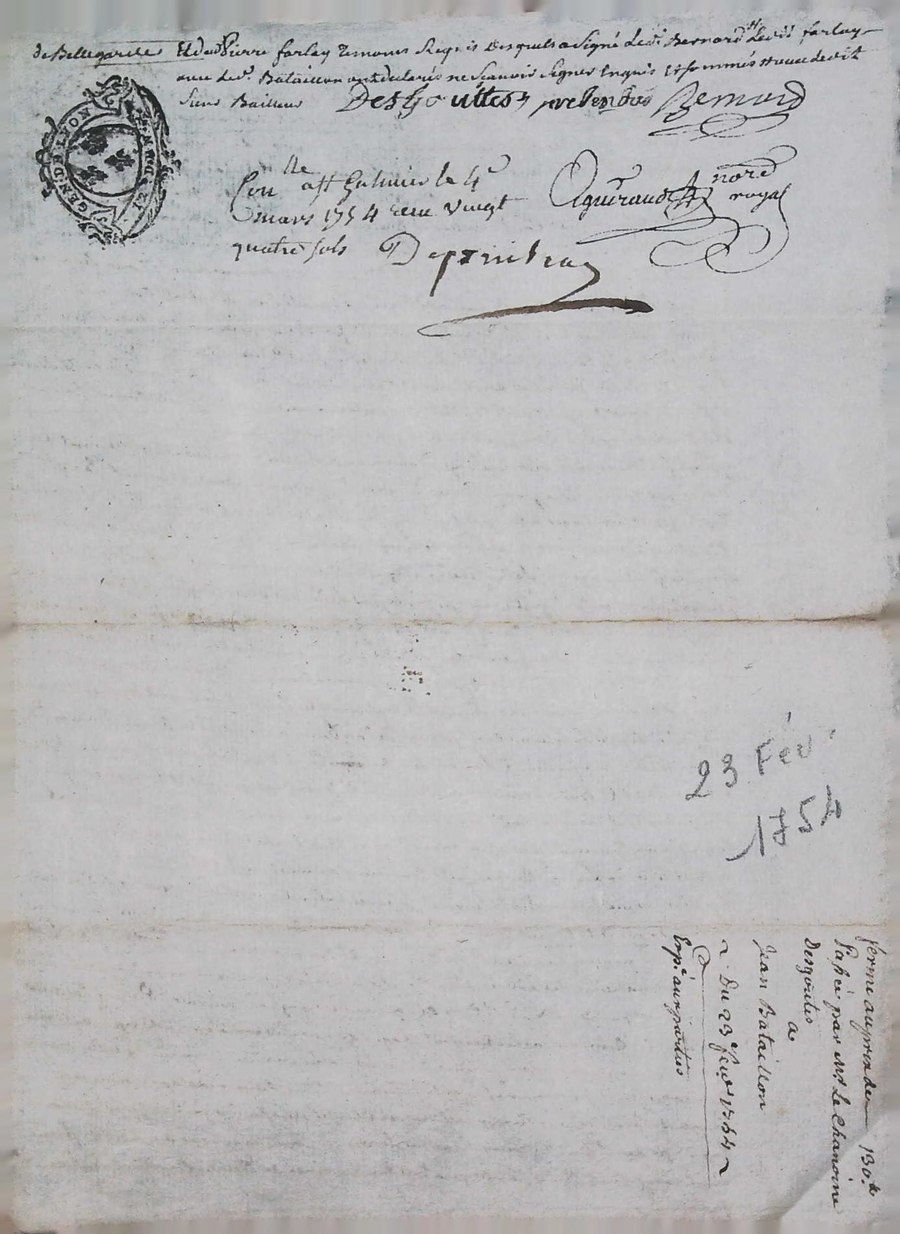 de Bellegarde Et dud Pierre farlay Temoins Requis Desquels a Signé Led.t Sr Bernard led farlay
avec led. Bataillon ont declarés ne Scavoir Signer Enquis et sommés
Sieur Bailleur Desgouttes Bernard
GEN. DE LYON
Con.lle a St Galmier le 4e
mars 1754 receu vingt
quatre sols
Aguiraud nore
royal
23 Fév.
1754
ferme au prix de 130.#
Passée par Mr. Le Chanoine
Desgoutes
a
Jean Bataillon
Du 23e fev. 1754
Exp.e aux parties